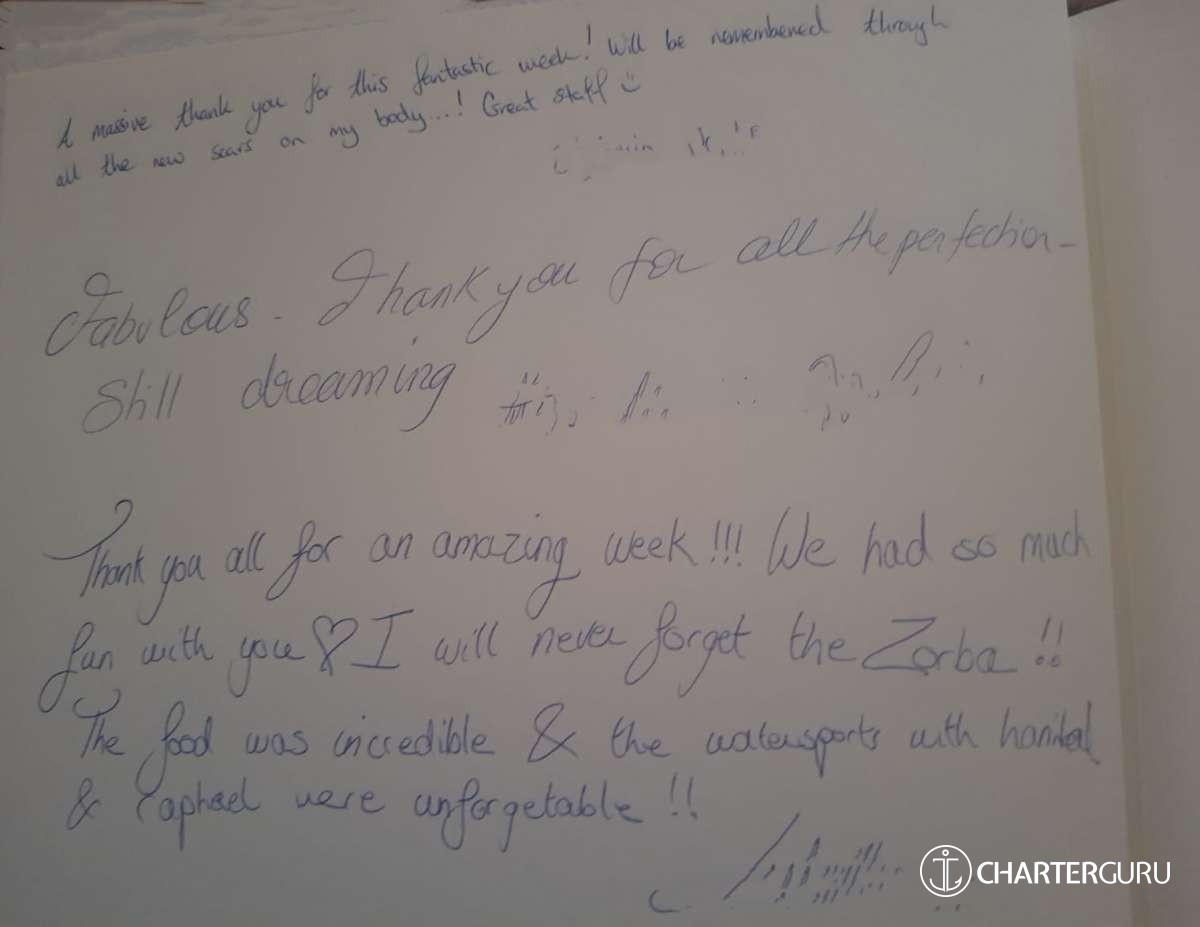 A massive thank you for this fantastic week! Will be remembered through
all the new scars on my body...! Great staff ☺
Fabulous. Thank you for all the perfection -
Still dreaming
Thank you all for an amazing week!!! We had so much
fun with you ♡ I will never forget the Zorba!!
The food was incredible & the watersports with
& raphael were unforgetable!!
CHARTERGURU